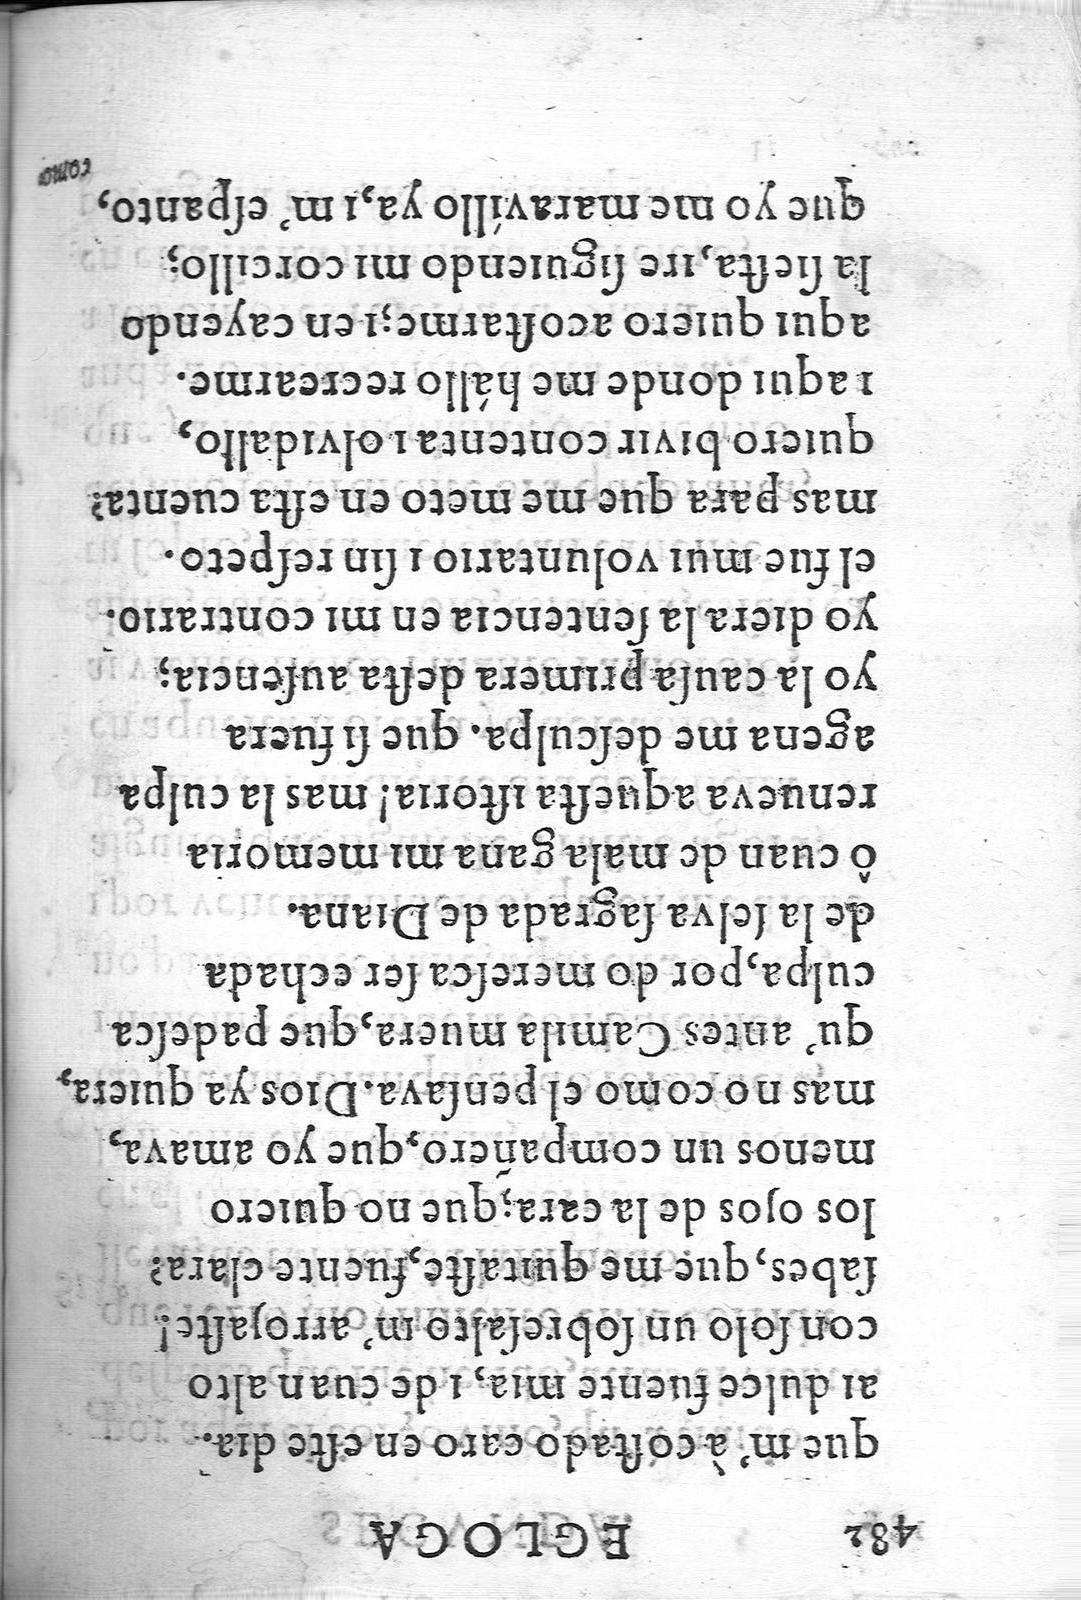 482 EGLOGA
que m' à costado caro en este dia.
ai dulce fuente mia, i de cuan alto
con solo un sobresalto m' arrojaste!
sabes, que me quitaste, fuente clara?
los ojos de la cara; que no quiero
menos un compañero, que yo amava,
mas no como el pensava. Dios ya quiera,
qu' antes Camila muera, que padesca
culpa, por do meresca ser echada
de la selva sagrada de Diana.
ô cuan de mala gana mi memoria
renueva aquesta istoria! mas la culpa
agena me desculpa. que si fuera
yo la causa primera desta ausencia;
yo diera la sentencia en mi contrario.
el fue mui voluntario i sin respeto.
mas para que me meto en esta cuenta?
quiero bivir contenta i olvidallo,
i aqui donde me hállo recrearme.
aqui quiero acostarme; i en cayendo
la siesta, ire siguiendo mi corcillo;
que yo me maravillo ya, i m' espanto,
como